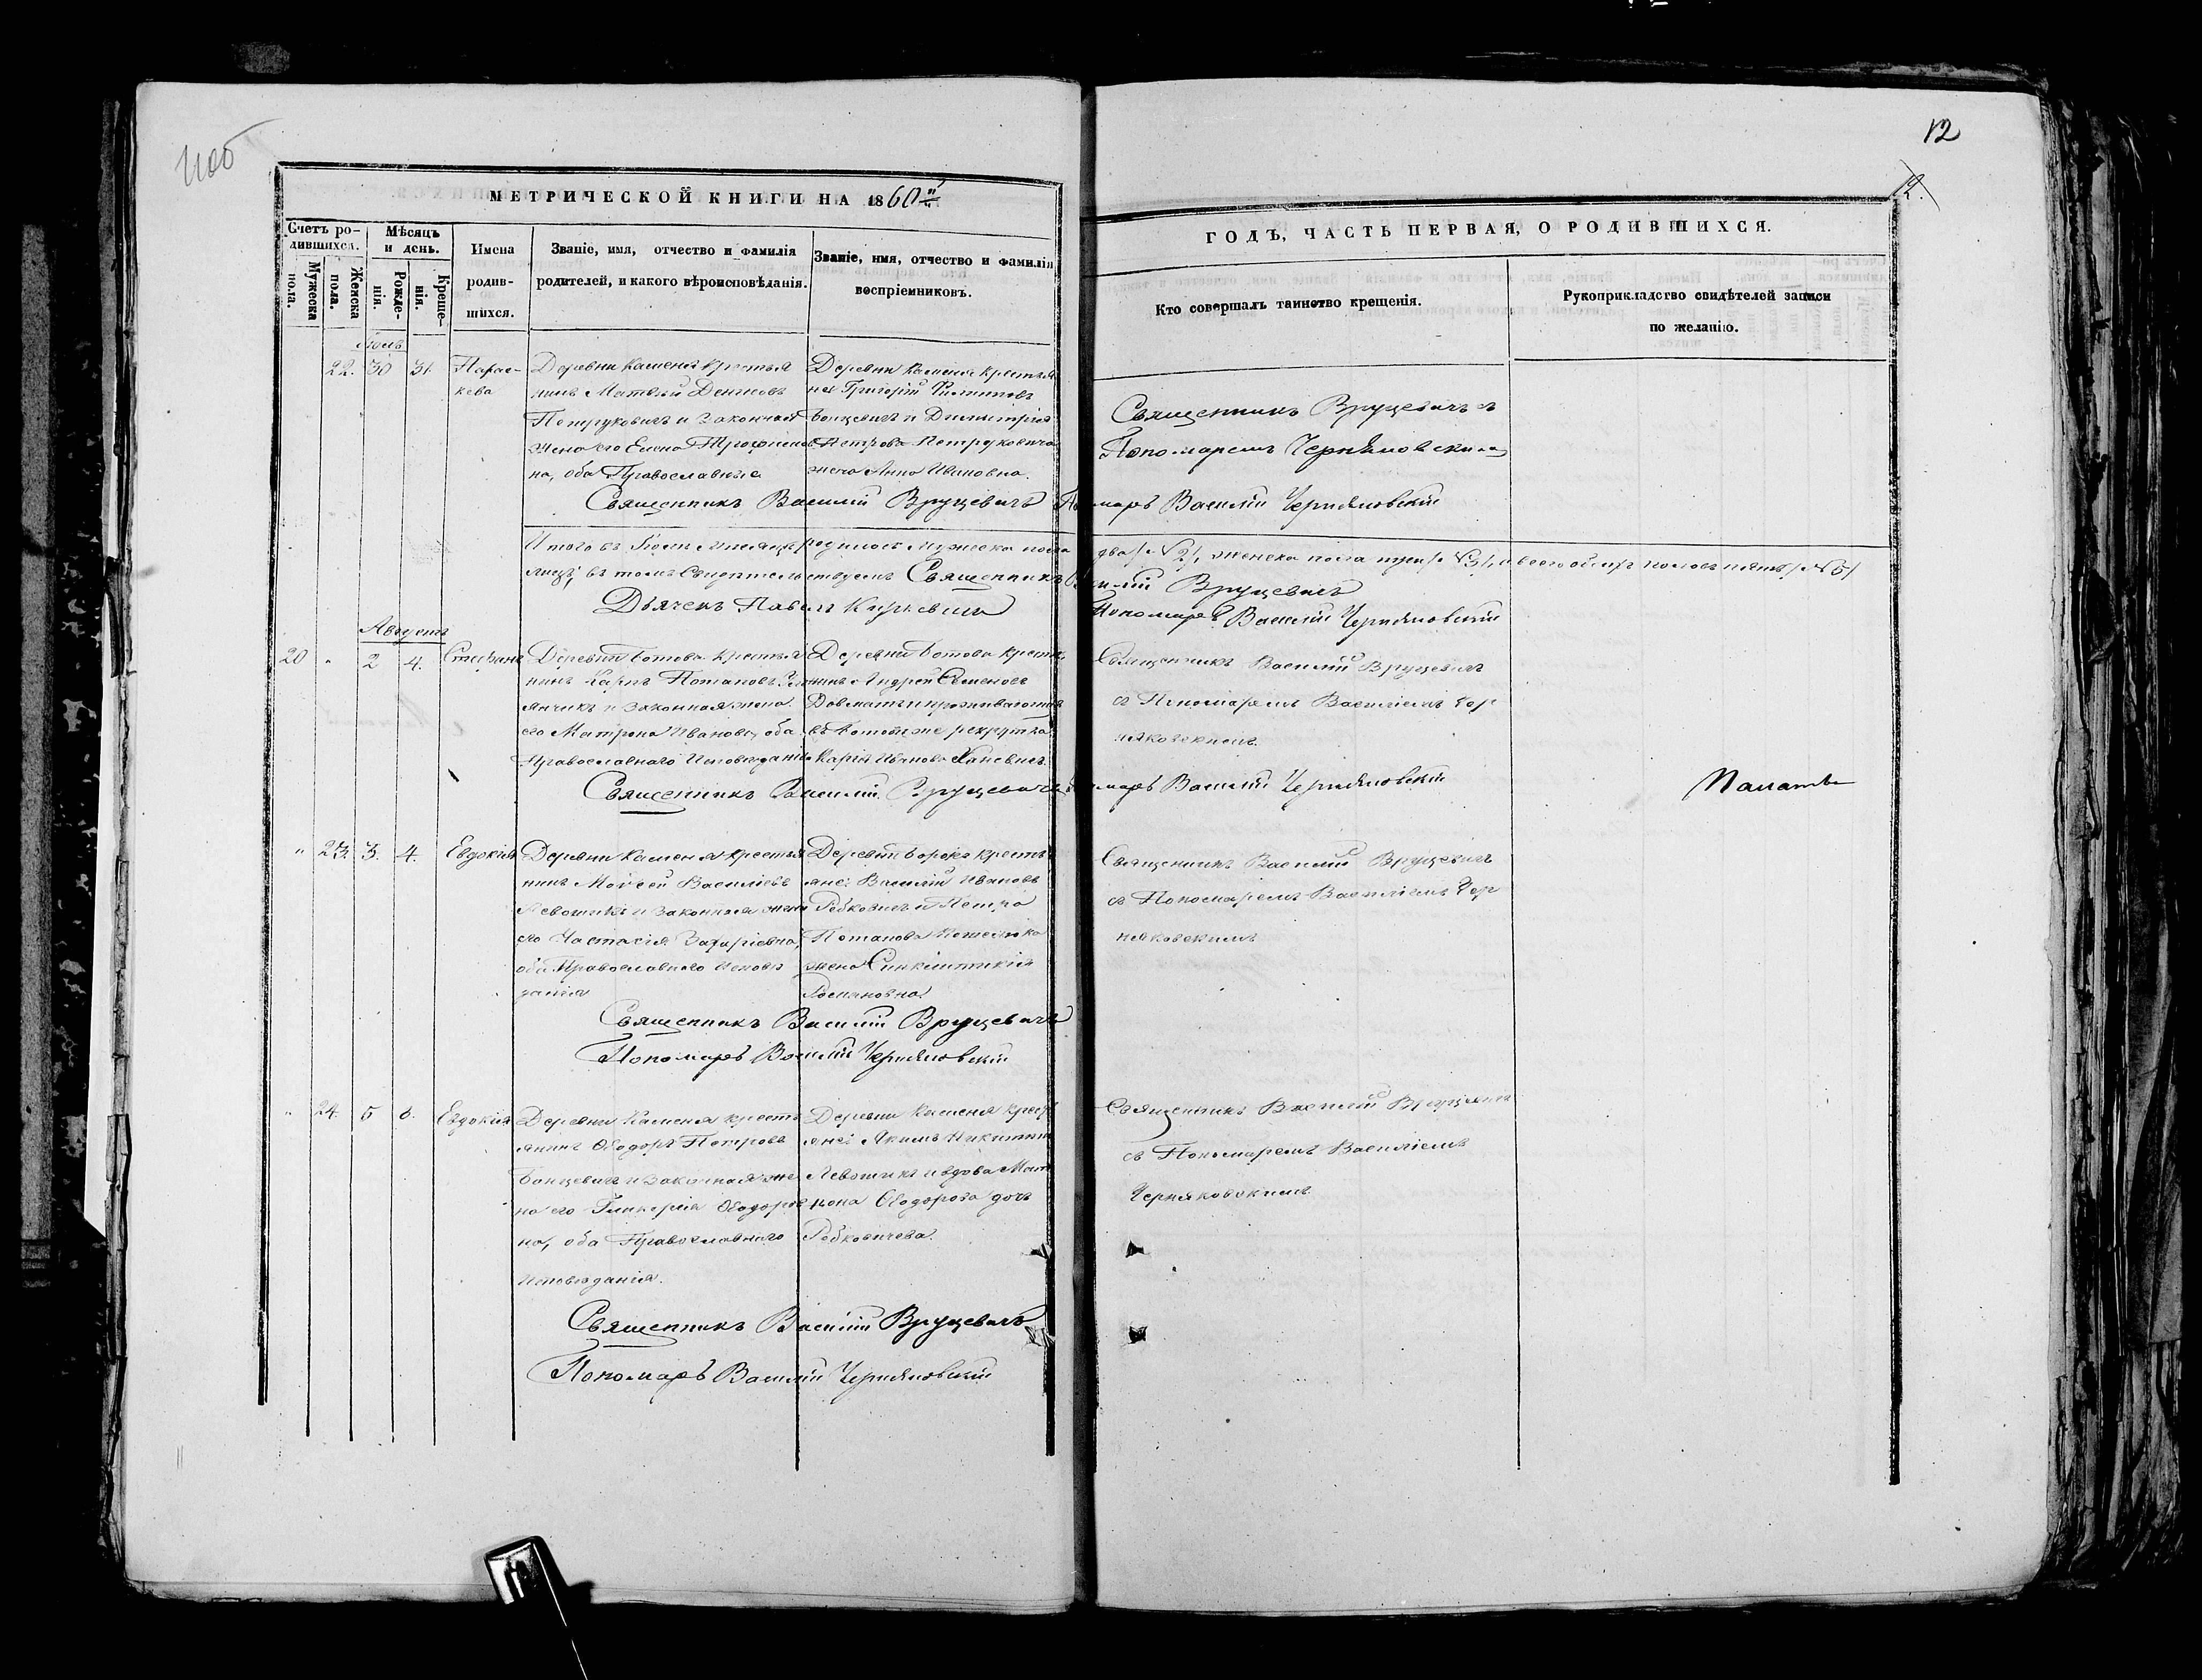 12
12.
МЕТРИЧЕСКОЙ КНИГИ НА 1860й
ГОДЪ, ЧАСТЬ ПЕРВАЯ, О РОДИВШИХСЯ.
Счетъ ро-
дившихся.
Мужеска
пола.
Женска
пола.
Мѣсяцъ
и день.
Рожде-
нія.
Креще-
нія.
Имена
родив-
шихся.
Званіе, имя, отчество и фамилія
родителей, и какого вѣроисповѣданія.
Званіе, имя, отчество и фамилія
воспріемниковъ.
Кто совершалъ таинство крещенія.
Рукоприкладство свидѣтелей записи
по желанію.
Іюль
22. 30 31.
Парас-
кева
Деревни Каменя крестья
нинъ Матвѣй Денисовъ
Петруковичъ и законная
жена его Елена Трофимов
на, оба Православные
Деревни Каменя крестья
не: Григорій Филиповъ
Бонцевичъ и Димитрія
Петрова Петруковича
жена Анна Ивановна.
Священникъ Вруцевичъ съ
Пономаремъ Черняковскимъ
Священникъ Василій Вруцевичъ
Пономарь Василій Черняковскій
Итого въ Іюлѣ мѣсяцѣ родилось мужеска пола два /№ 2/, женска пола три /№ 3/, а всего обоихъ половъ пять /№ 5/
лицъ, въ томъ свидѣтельствуемъ Священникъ Василій Вруцевичъ
Дьячекъ Павелъ
Пономарь Василій Черняковскій
Августъ
20 " 2 4.
Стефанъ
Деревни Ботова крестья
нинъ Карпъ Потаповъ
и законная жена
его Матрона Иванова, оба
Православнаго Исповѣданія
Деревни Ботова крестья
нинъ Андрей Семеновъ
и проживающая
въ Ботовѣ же рекрутка
Марія Иванова
Священникъ Василій Вруцевичъ
съ Пономаремъ Василіемъ Чер
няковскимъ.
Священникъ Василій Вруцевичъ
Пономарь Василій Черняковскій
" 23. 3. 4.
Евдокія
Деревни Каменя крестья
нинъ Моѵсей Василіевъ
Левошикъ и законная жена
его Настасія Захаріевна,
оба Православнаго Исповѣ
данія
крестья
не: Василій Ивановъ
Рѣбковичъ и Петра
Потапова
жена Синклитикія
Романовна.
Священникъ Василій Вруцевичъ
съ Пономаремъ Василіемъ Чер
няковскимъ
Священникъ Василій Вруцевичъ
Пономарь Василій Черняковскій
" 24. 5 6.
Евдокія
Деревни Каменя кресть
янинъ Ѳеодоръ Петровъ
Бонцевичъ и законная же
на его Гликерія Ѳеодоров
на, оба Православнаго
Исповѣданія.
Деревни Каменя кресть
яне: Якимъ Никитинъ
Левошикъ и вдова Мат
рона Ѳеодорова дочь
Рѣбковичева.
Священникъ Василій Вруцевичъ
съ Пономаремъ Василіемъ
Черняковскимъ
Священникъ Василій Вруцевичъ
Пономарь Василій Черняковскій